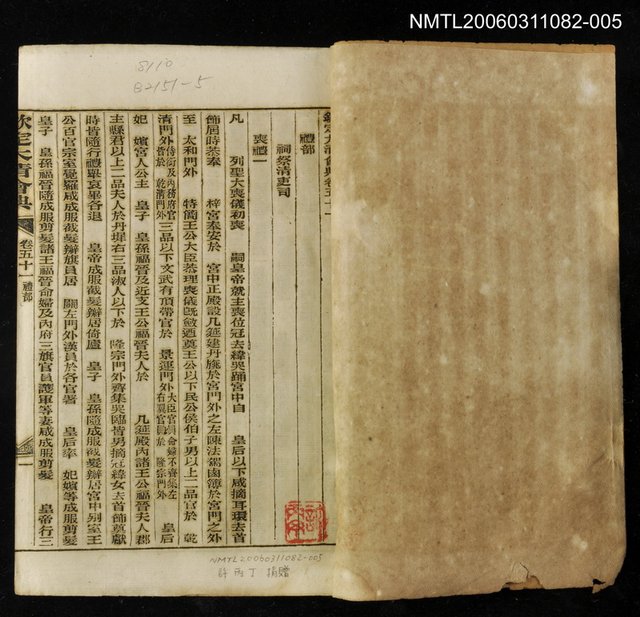 NMTL20060311082-005
8110
B2151-5
欽定大清會典卷五十一
禮部
祠祭清吏司
喪禮一
凡 列聖大喪儀初喪 嗣皇帝就主喪位冠去緯哭踊宮中自 皇后以下咸摘耳環去首
飾居時恭奉 梓宮奉安於 宮中正殿設几筵建丹旐於宮門之左陳法駕鹵簿於宮門之外
至 太和門外 特簡王公大臣恭理喪儀旣斂迺奠王公以下民公侯伯子男以上二品官於 乾
清門外侍衛及內務府官皆於 乾清門外三品以下文武有頂帶官於 景運門外大臣官員命婦不齊集左右翼官員於 隆宗門外 皇后
妃 嬪宮人公主 皇子 皇孫福晉及近支王公福晉夫人於 几筵殿內諸王公福晉夫人郡
主縣君以上二品夫人於丹墀右三品淑人以下於 隆宗門外齊集哭臨皆男摘冠緯女去首飾奠獻
時皆隨行禮畢哀畢各退 皇帝成服截髮辮居倚廬 皇子 皇孫隨成服截髮辮居宮中別室王
公百官宗室覺羅咸成服截髮辮旗員居 闕左門外漢員於各官署 皇后率 妃嬪等成服剪髮
皇子 皇孫福晉隨成服剪髮諸王福晉命婦及內府三旗官員護軍等妻咸成服剪髮 皇帝行三
欽定大清會典 卷五十一 禮部 一
NMTL20060311082-005
許丙丁 捐贈